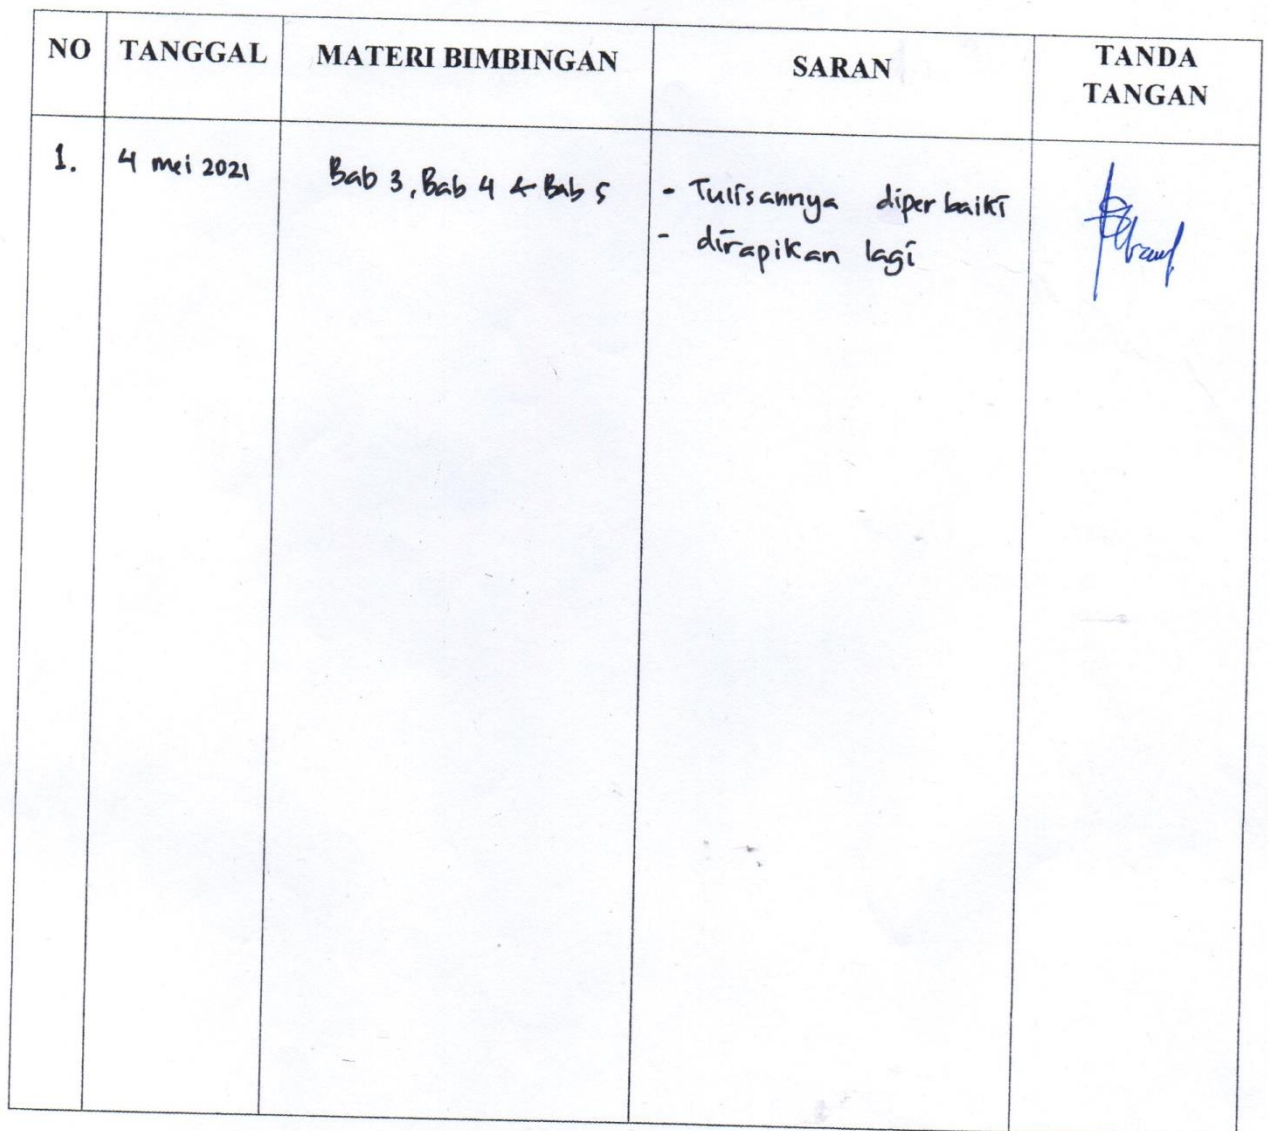 NO TANGGAL MATERI BIMBINGAN SARAN TANDA TANGAN
1. 4 mei 2021 Bab 3, Bab 4 & Bab 5 - Tulisannya diperbaiki
- dirapikan lagi